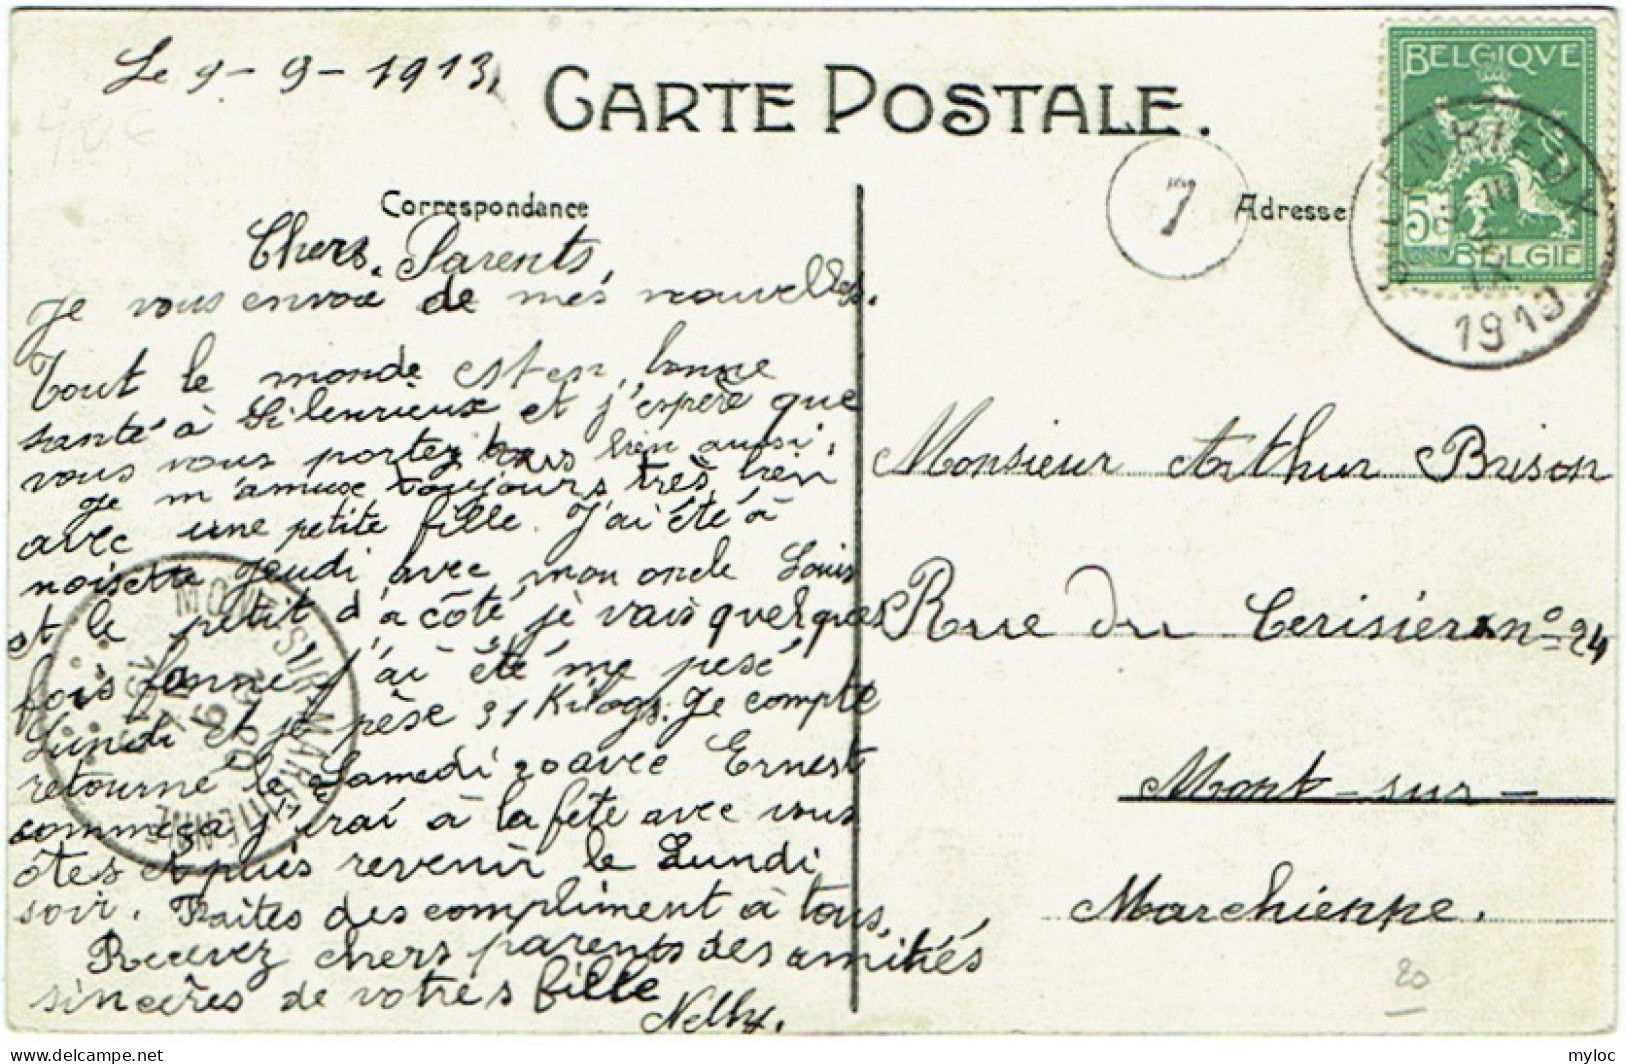 Le 9-9-1913,
CARTE POSTALE.
Correspondance
Chers Parents,
Je vous envoie de mes nouvelles.
Tout le monde est en bonne
santé à Silenrieux et j'espère que
vous vous portez tous bien aussi.
Je m'amuse toujours très bien
avec une petite fille. J'ai été à
noisette jeudi avec mon oncle Louis
et le petit d'à côté je vais quelques
fois J'ai été me pesé
Lundi et je pèse 31 Kilogs. Je compte
retourne le Samedi 20 avec Ernest
comme ça j'irai à la fête avec vous
ôtes et puis revenir le Lundi
soir. Faites des compliment à tous.
Recevez chers parents des amitiés
sincères de votres fille
Nelly.
7
Adresse
BELGIQUE
5c
BELGIE
1913
Monsieur Arthur Brison
Rue du Cerisier n° 24
Mont-sur-
Marchienne.
MONT-SUR-MARCHIENNE
20
myloc